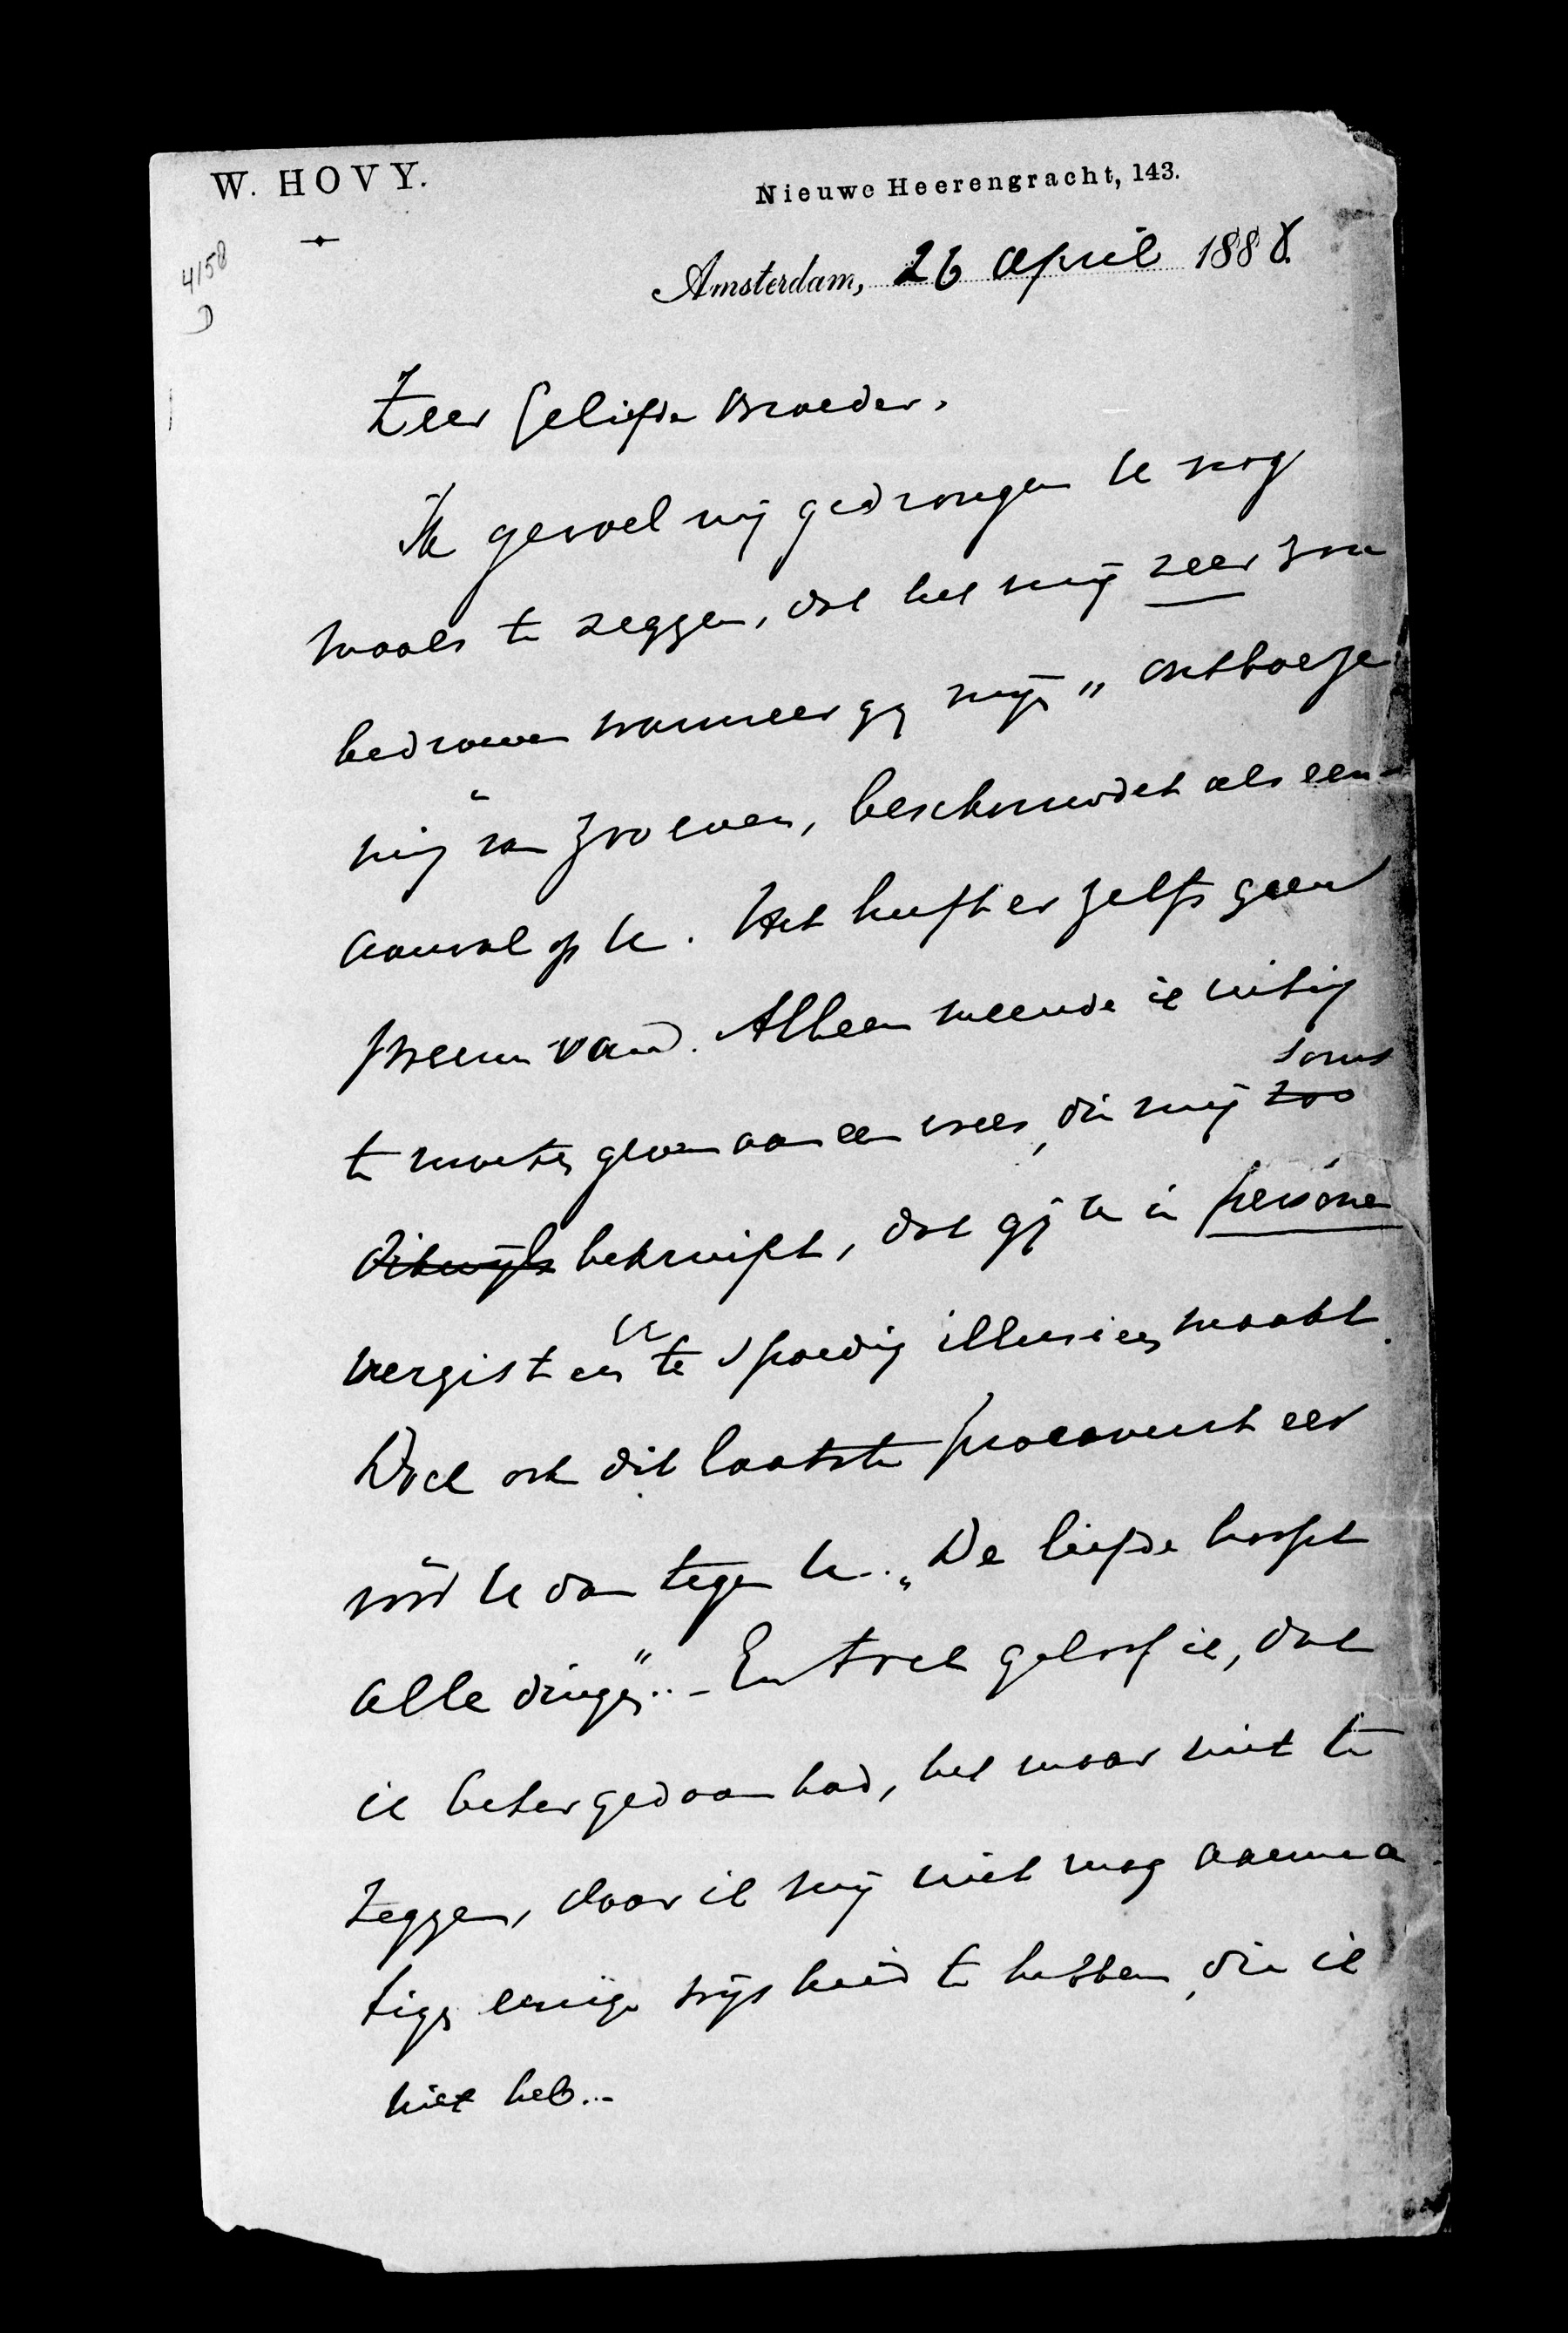 W. HOVY.
Nieuwe Heerengracht, 143.
4158
Amsterdam, 26 April 1888.
Zeer Geliefde Broeder,
Ik gevoel mij gedrongen U nog
maals te zeggen, dat het mij zeer zou
bedroeven wanneer gij mijn "ontboeze
ming" van zooeven, beschouwdet als een
aanval op U. Het heeft er zelfs geen
zweem van. Alleen meende ik uiting
te moeten geven aan een vrees, die mij soms
bekruipt, dat gij U in personen
vergist en U te spoedig illusien maakt.
Doch ook dit laatste praeaveert eer
vóór U dan tegen U. "De liefde hoopt
alle dingen". - En toch geloof ik, dat
ik beter gedaan had, het maar niet te
zeggen, daar ik mij niet mag aanma
tigen eenige wijsheid te hebben, die ik
niet heb. -